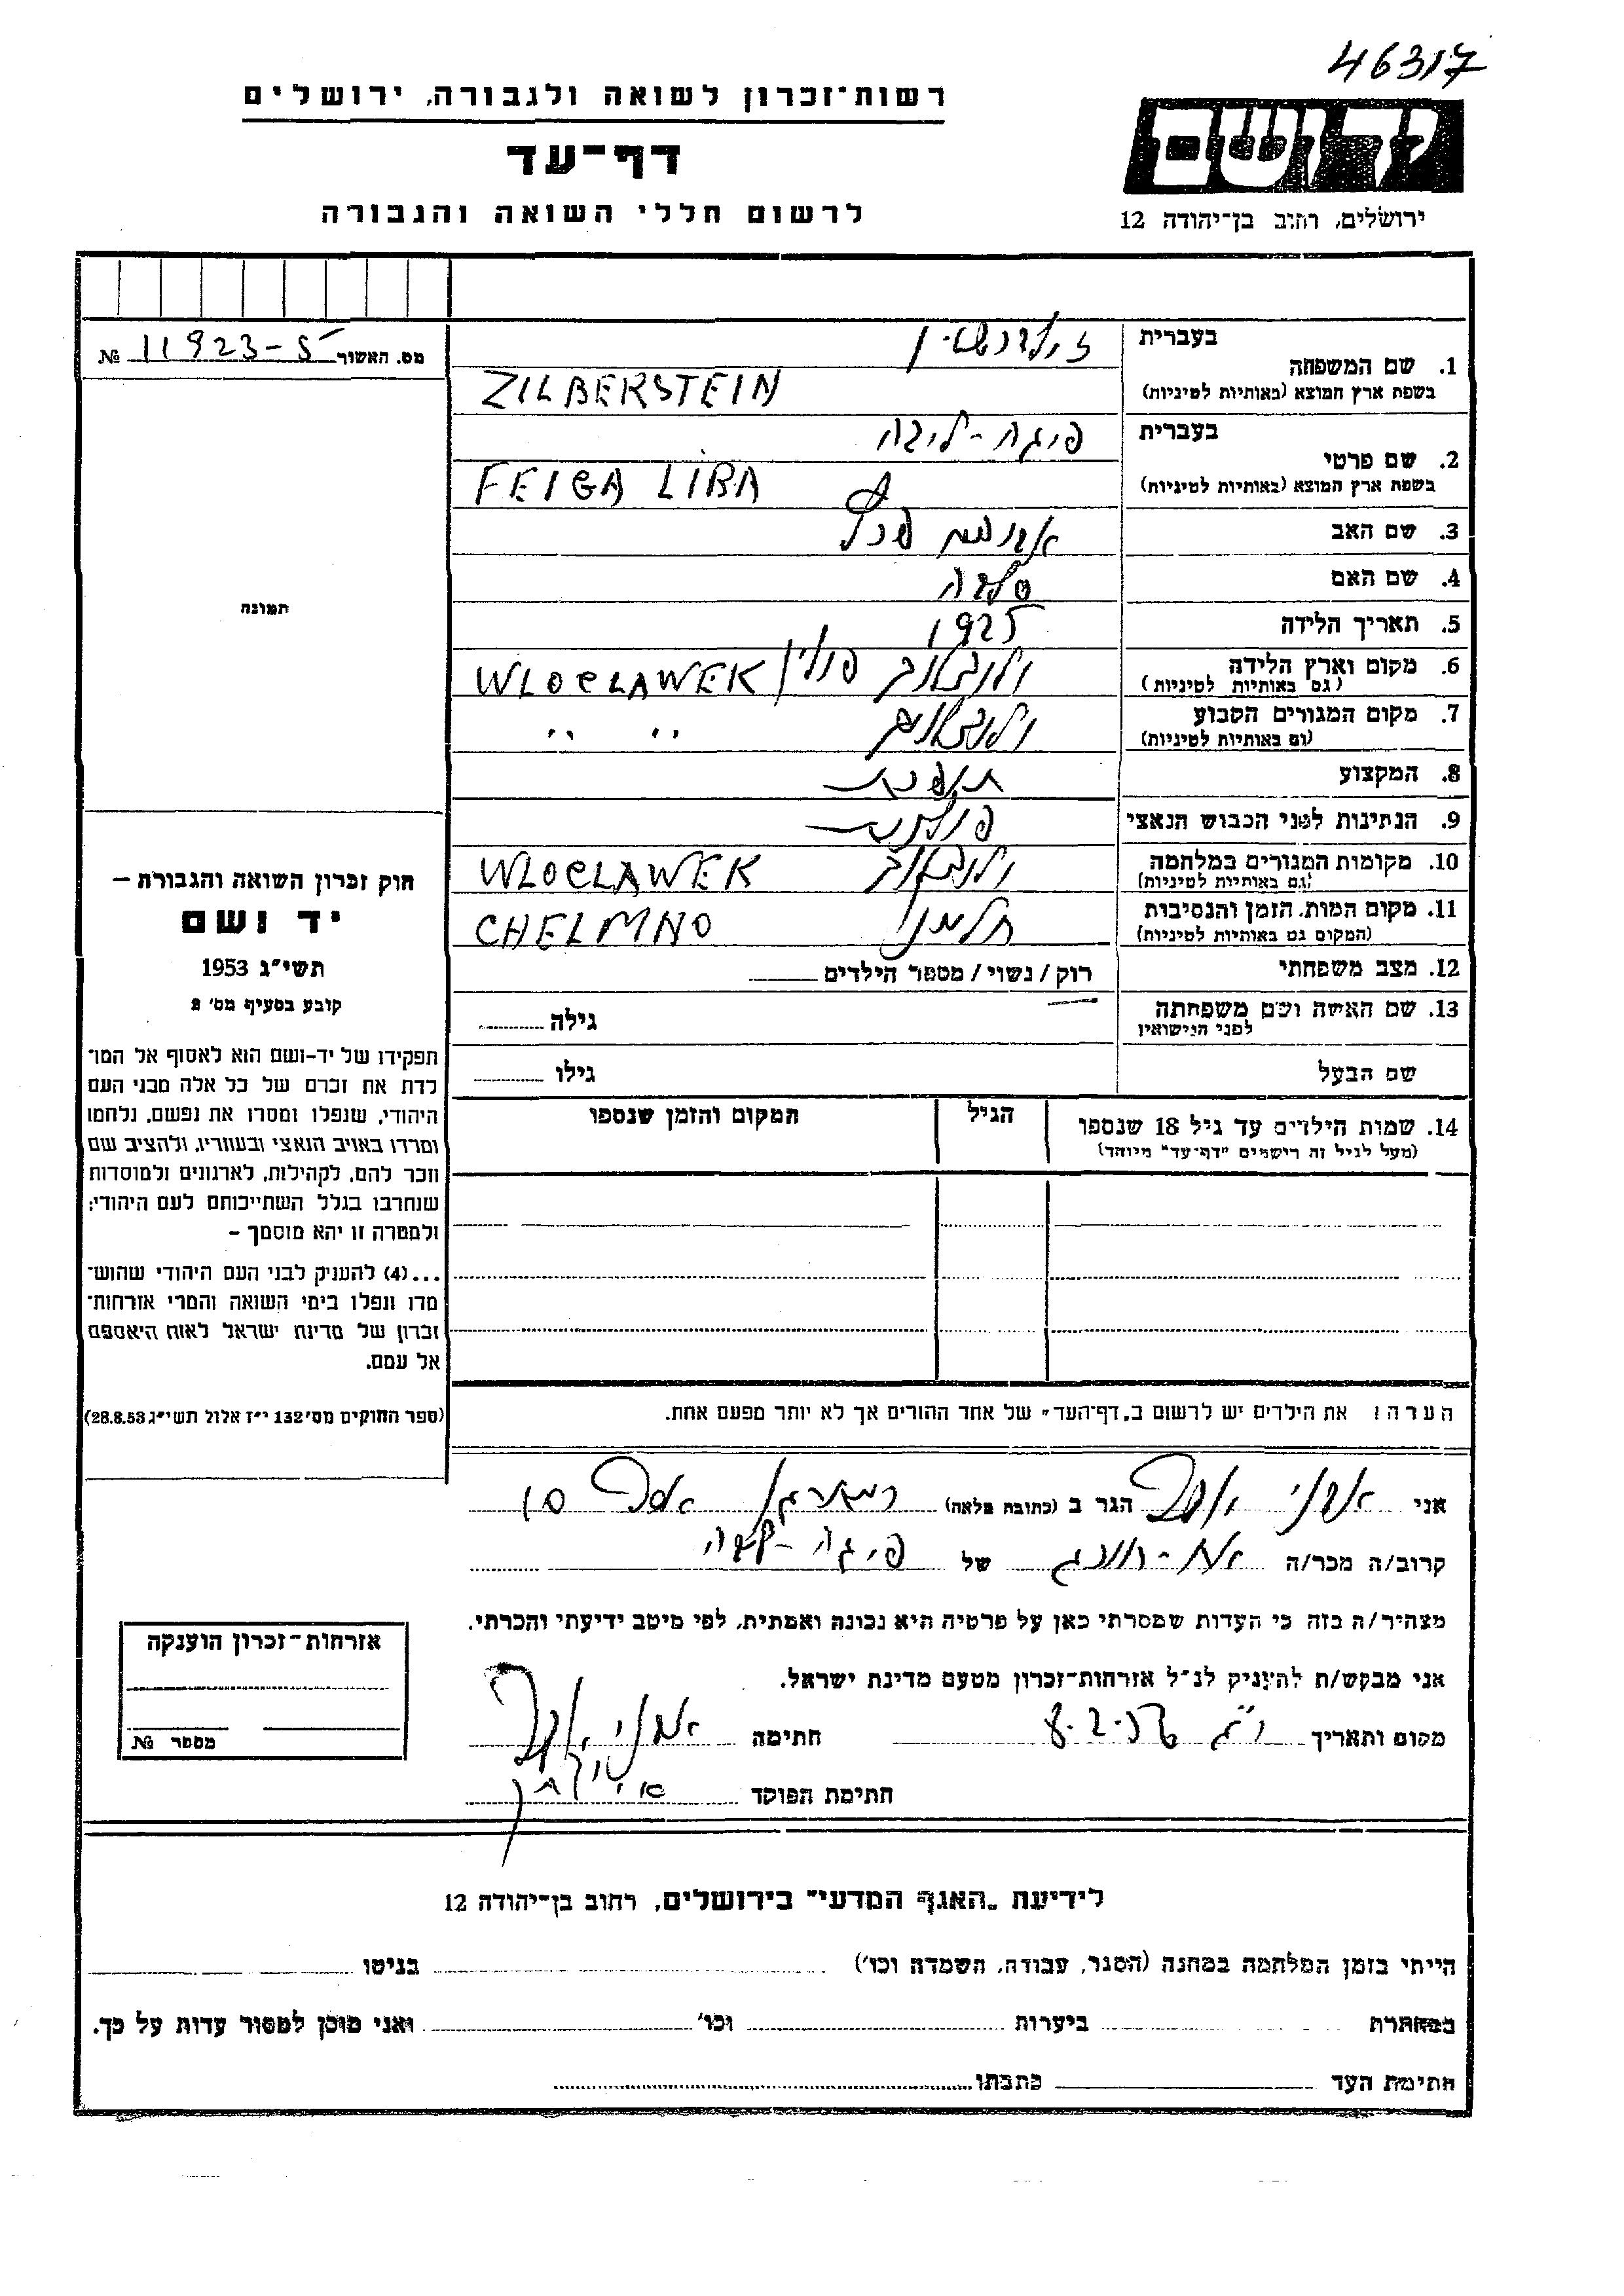 46317
רשות־זכרון לשואה ולגבורה, ירושלים
דף־עד
לרשום חללי השואה והגבורה
יד ושם
ירושלים, רחוב בן־יהודה 12
מס. האשור 11923-5 №
בעברית
1. שם המשפחה
(באותיות לטיניות) בשפת ארץ המוצא
זילברשטין
ZILBERSTEIN
בעברית
2. שם פרטי
(באותיות לטיניות) בשפת ארץ המוצא
פיגה-ליבה
FEIGA LIBA
3. שם האב
4. שם האם
5. תאריך הלידה 1925
6. מקום וארץ הלידה
(גם באותיות לטיניות)
ולוצלבק פולין WLOCLAWEK
7. מקום המגורים הקבוע
(גם באותיות לטיניות)
ולוצלבק " "
8. המקצוע
9. הנתינות לפני הכבוש הנאצי
פולנית
10. מקומות המגורים במלחמה
(גם באותיות לטיניות)
ולוצלבק WLOCLAWEK
11. מקום המות, הזמן והנסיבות
(המקום גם באותיות לטיניות)
חלמנו CHELMNO
12. מצב משפחתי רוק / נשוי / מספר הילדים
13. שם האשה ושם משפחתה
לפני הנישואין
גילה
שם הבעל גילו
14. שמות הילדים עד גיל 18 שנספו
(מעל לגיל זה רישמים "דף־עד" מיוחד)
הגיל
המקום והזמן שנספו
תמונה
חוק זכרון השואה והגבורה –
יד ושם
תשי"ג 1953
קובע בסעיף מס' 2
תפקידו של יד-ושם הוא לאסוף אל המו־
לדת את זכרם של כל אלה מבני העם
היהודי, שנפלו ומסרו את נפשם, נלחמו
ומרדו באויב הנאצי ובעוזריו, ולהציב שם
וזכר להם, לקהילות, לארגונים ולמוסדות
שנחרבו בגלל השתייכותם לעם היהודי;
ולמטרה זו יהא מוסמך –
...(4) להעניק לבני העם היהודי שהוש־
מדו ונפלו בימי השואה והמרי אזרחות־
זכרון של מדינת ישראל לאות היאספם
אל עמם.
(ספר החוקים מס' 132 י"ז אלול תשי"ג 28.8.53)
הערה: את הילדים יש לרשום ב"דף־העד" של אחד ההורים אך לא יותר מפעם אחת.
אני הגר ב (כתובת מלאה)
קרוב/ה מכר/ה של פיגה-ליבה
מצהיר/ה בזה כי העדות שמסרתי כאן על פרטיה היא נכונה ואמתית, לפי מיטב ידיעתי והכרתי.
אני מבקש/ת להעניק לנ"ל אזרחות־זכרון מטעם מדינת ישראל.
מקום ותאריך 8.2.56 חתימה
חתימת הפוקד
אזרחות־זכרון הוענקה
מספר №
לידיעת "האגף המדעי" בירושלים, רחוב בן־יהודה 12
הייתי בזמן המלחמה במחנה (הסגר, עבודה, השמדה וכו') בגיטו
במחתרת ביערות וכו' ואני מוכן למסור עדות על כך.
חתימת העד כתבתו